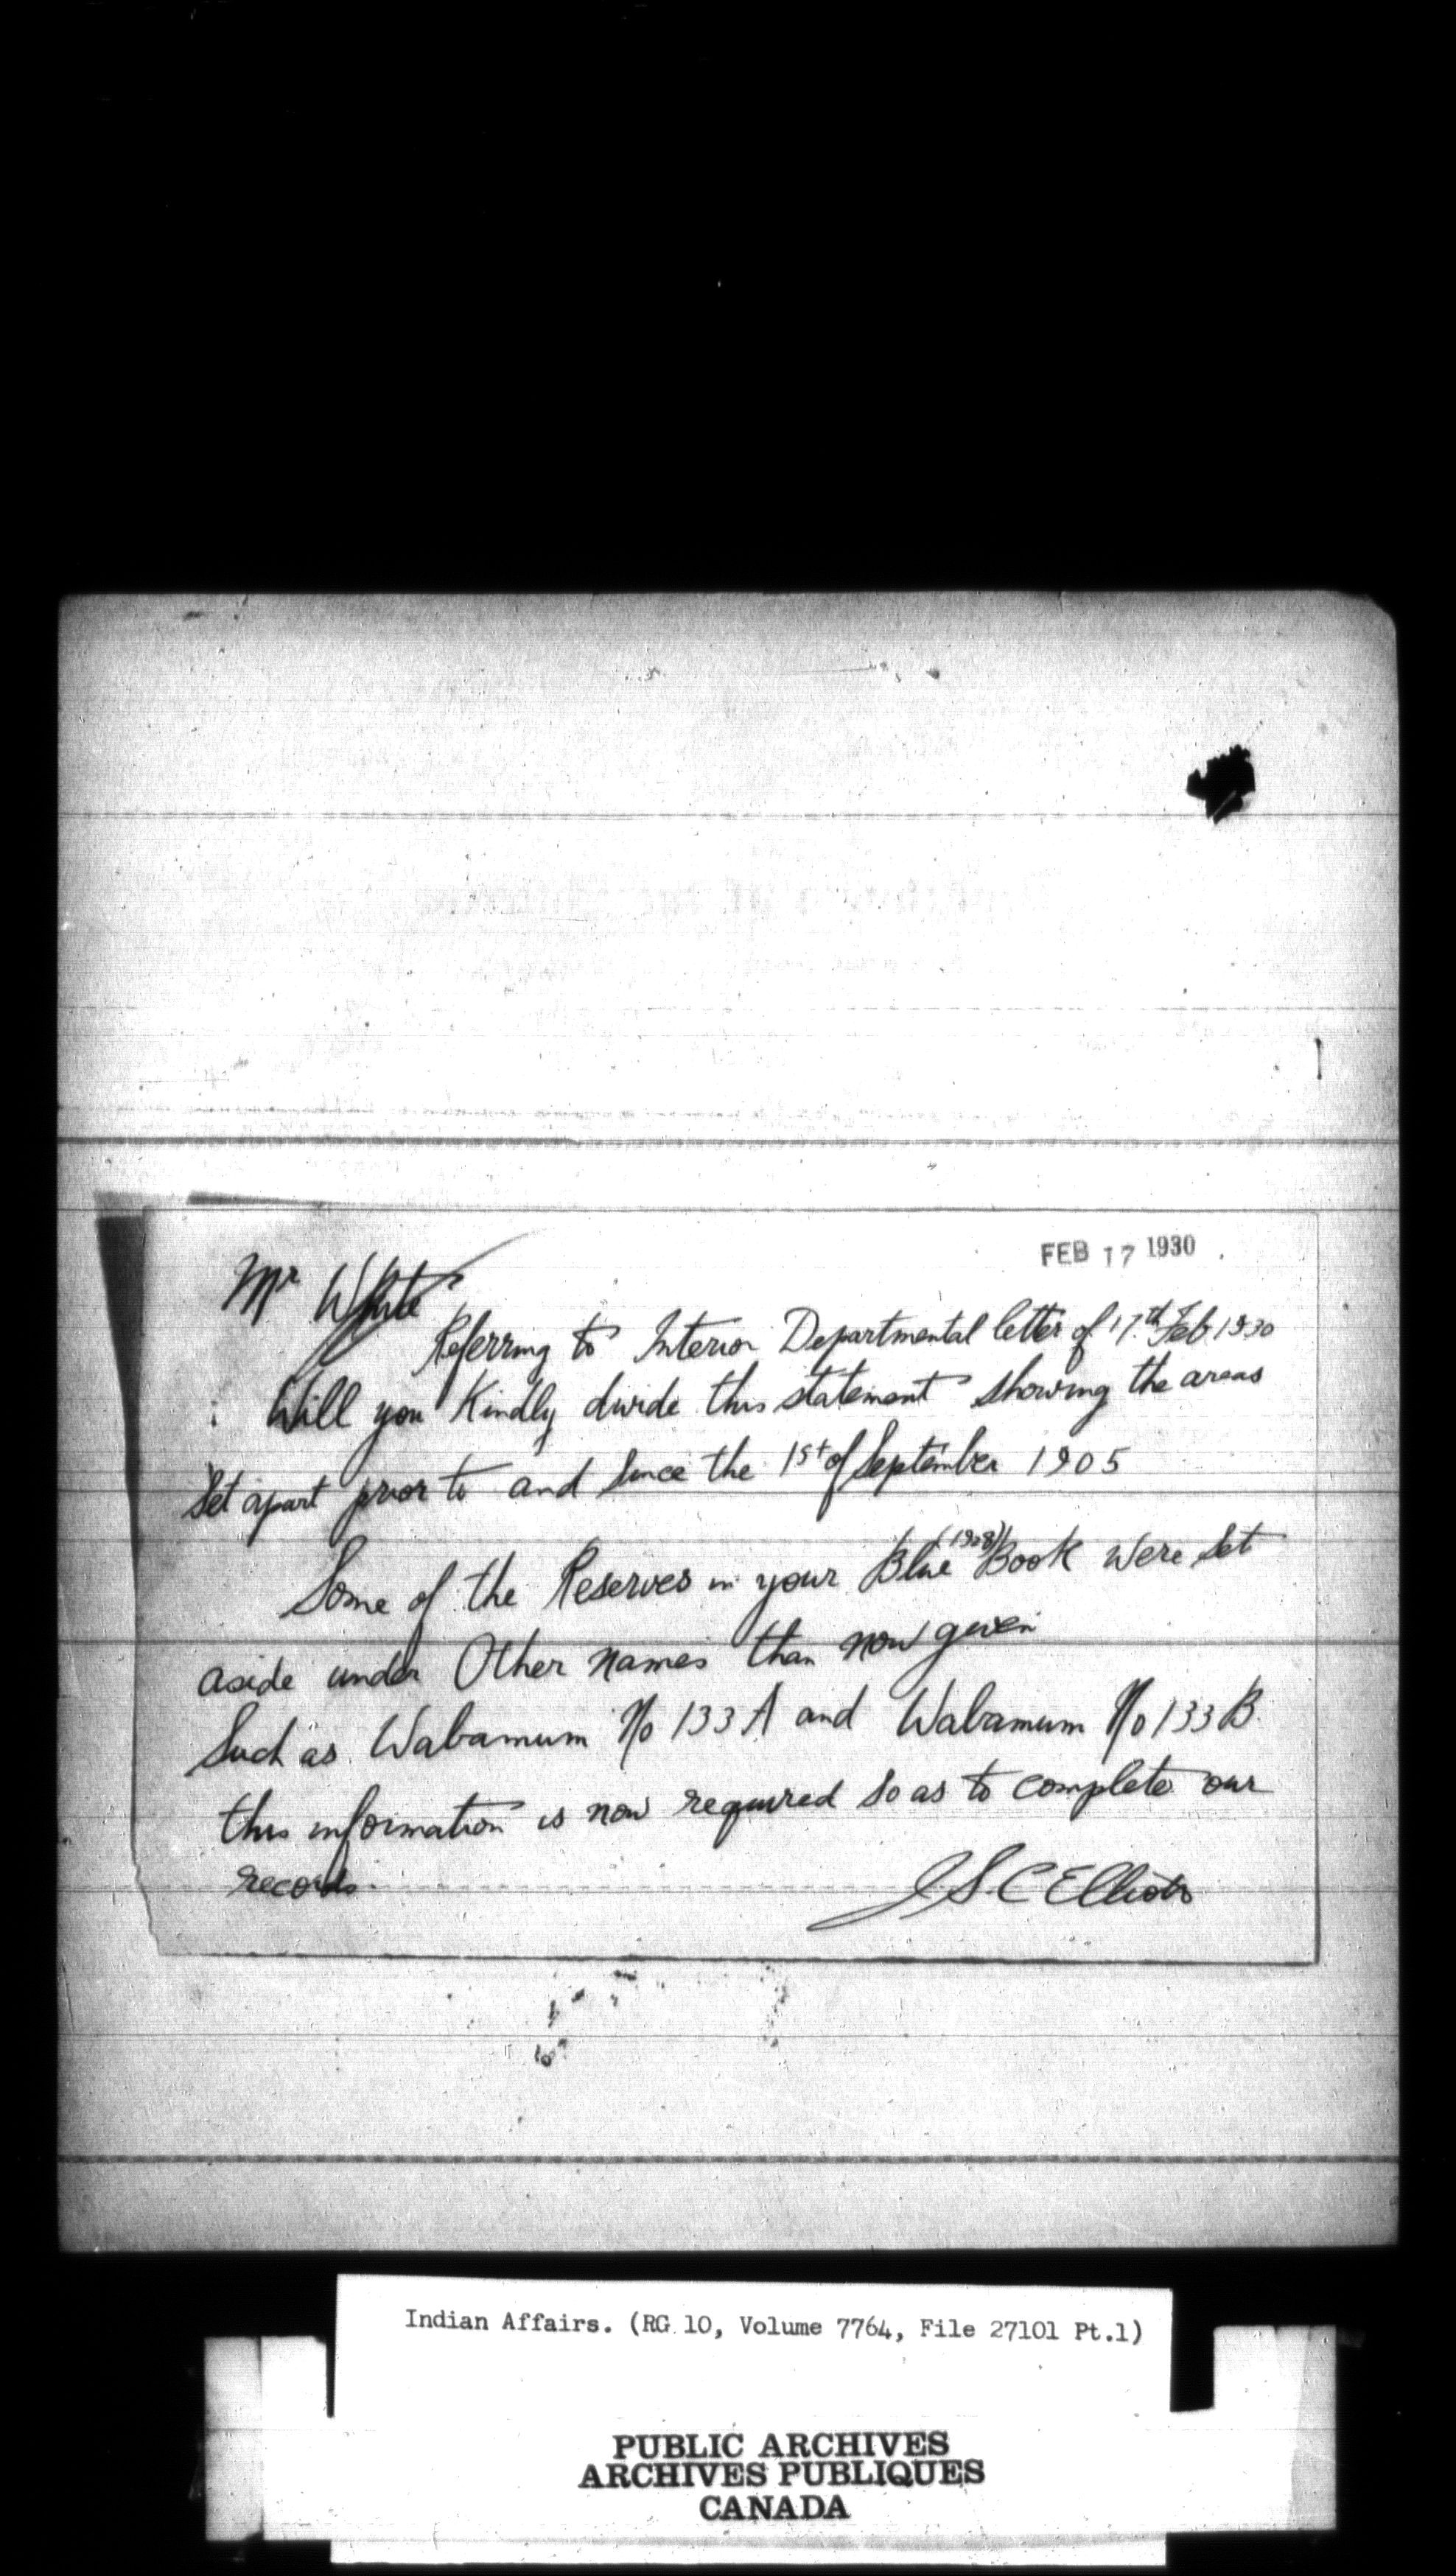 FEB 17 1930
Mr White
Referring to Interior Departmental letter of 17th Feb 1930
Will you Kindly divide this statement showing the areas
Set apart prior to and Since the 1st of September 1905
Some of the Reserves in your Blue (1928) Book were Set
aside under Other names than now given
Such as Wabamum No 133 A and Wabamum No 133 B.
this information is now required so as to complete our
records.
J S. C Elliott
Indian Affairs. (RG 10, Volume 7764, File 27101 Pt.1)
PUBLIC ARCHIVES
ARCHIVES PUBLIQUES
CANADA